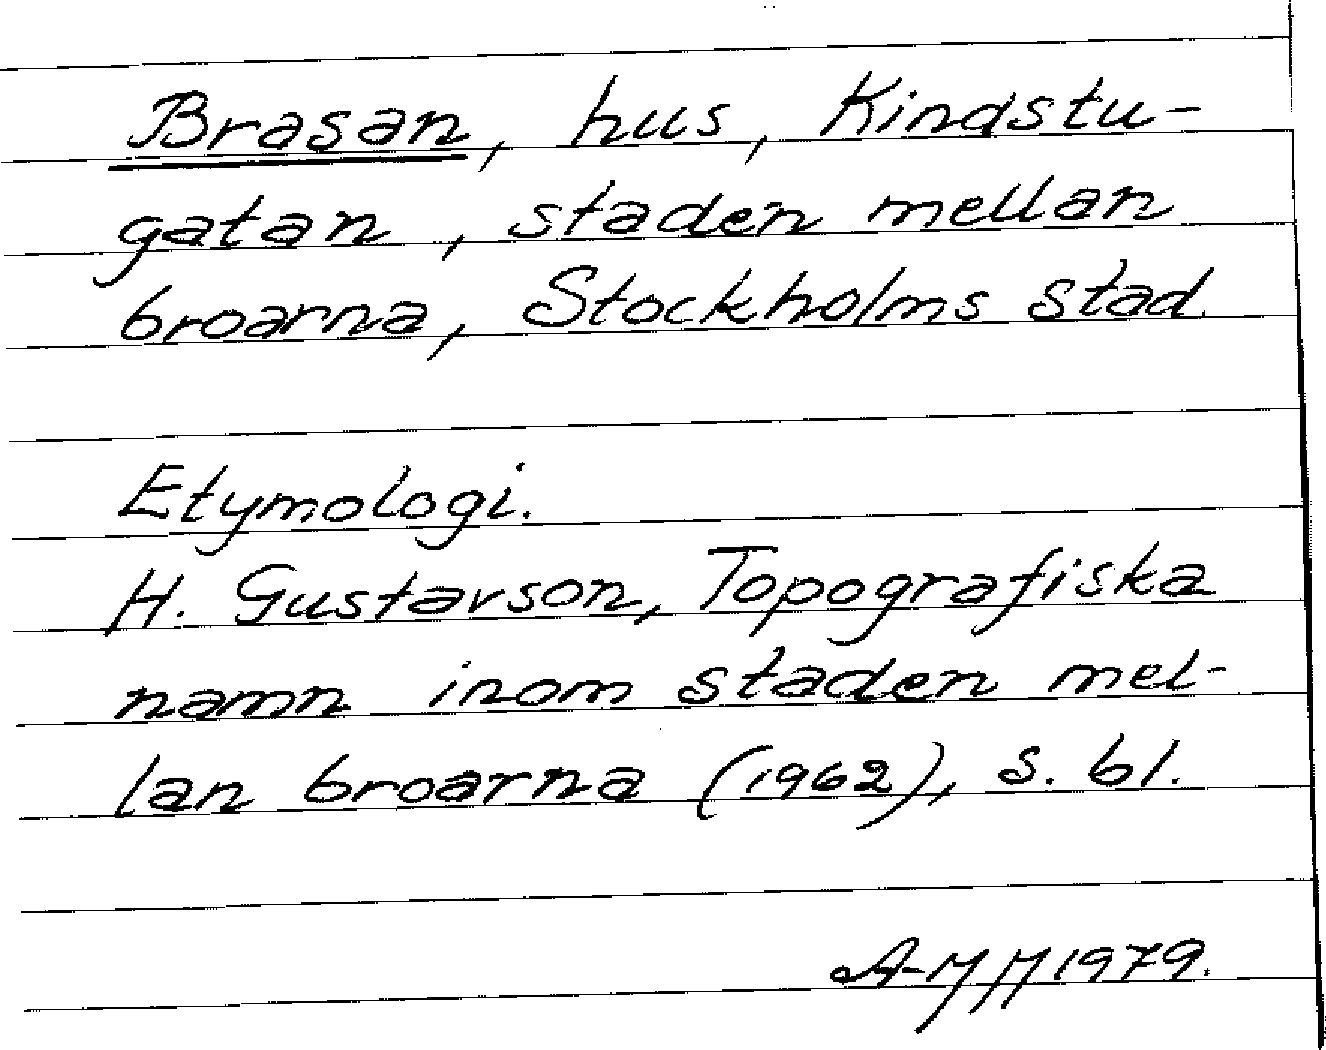 Brasan, hus, Kindstu-
gatan, staden mellan
broarna, Stockholms stad.
Etymologi.
H. Gustavson, Topografiska
namn inom staden mel-
lan broarna (1962), s. 61.
1979.